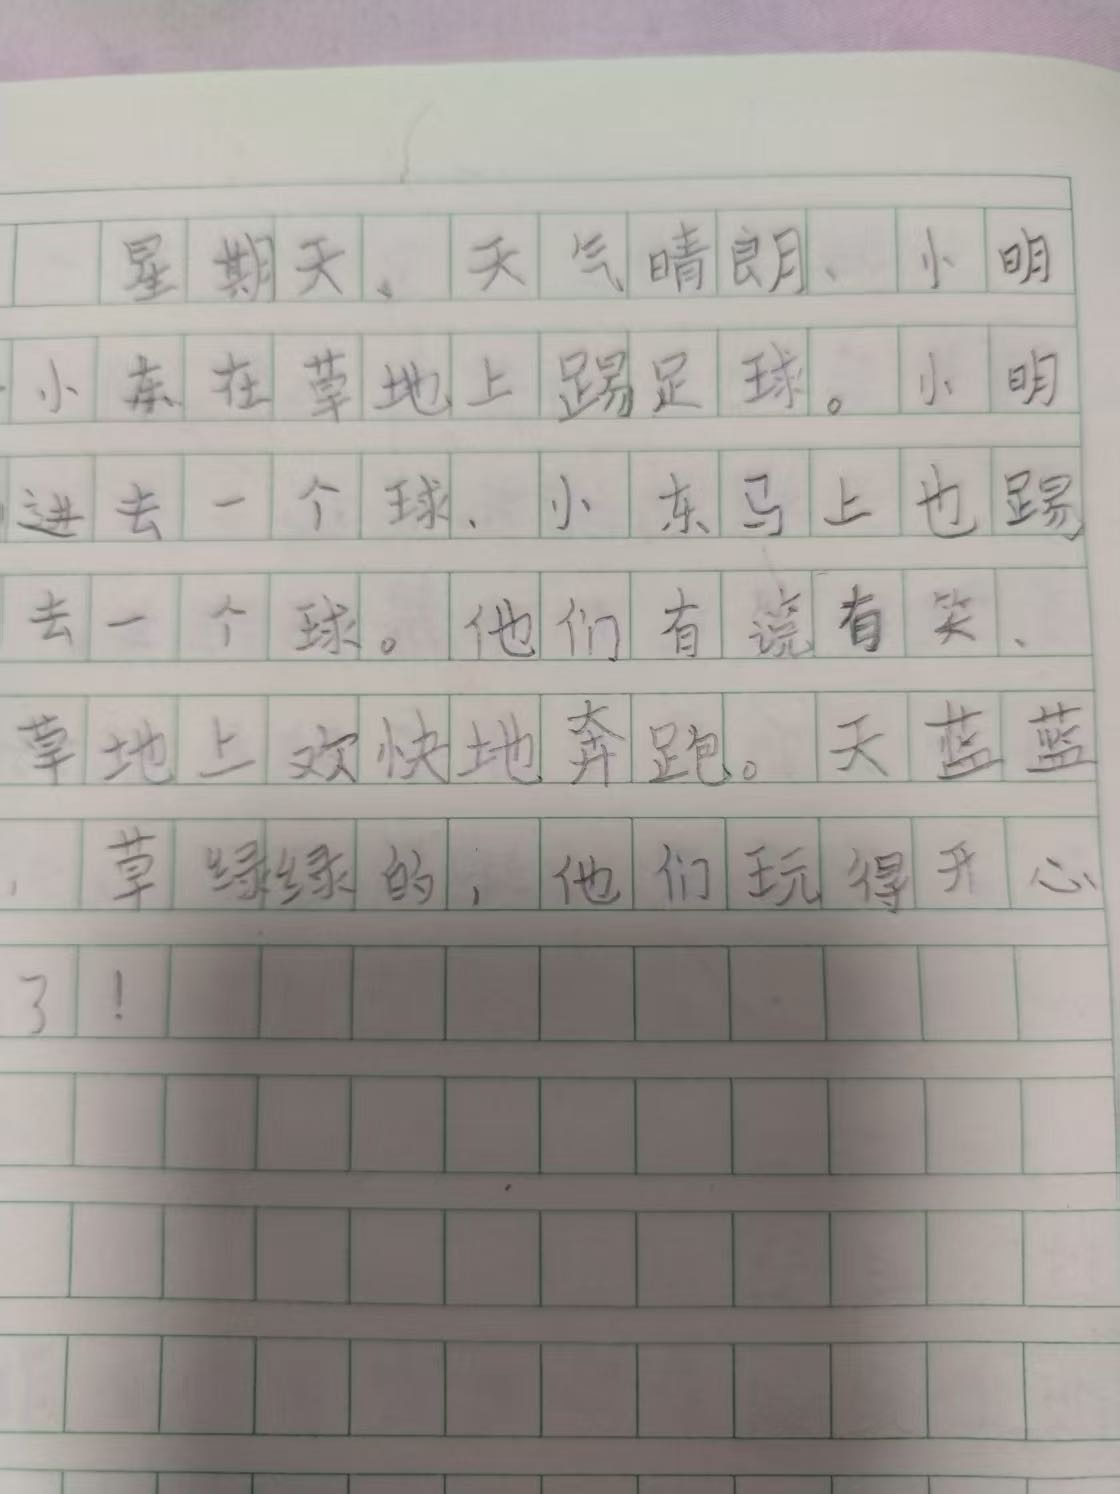 星期天、天气晴朗、小明
小东在草地上踢足球。小明
进去一个球、小东马上也踢
去一个球。他们有说有笑、
草地上欢快地奔跑。天蓝蓝
，草绿绿的，他们玩得开心
了！